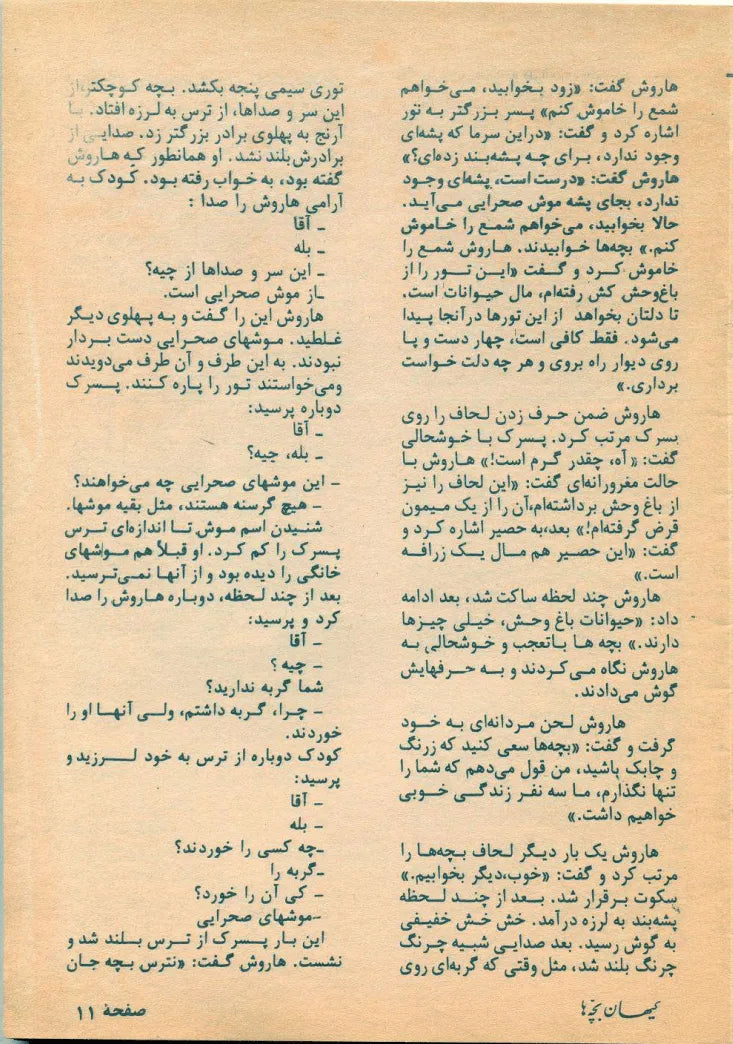 هاروش گفت: «زود بخوابید، می‌خواهم
شمع را خاموش کنم» پسر بزرگتر به تور
اشاره کرد و گفت: «دراین سرما که پشه‌ای
وجود ندارد، برای چه پشه‌بند زده‌ای؟»
هاروش گفت: «درست است، پشه‌ای وجود
ندارد، بجای پشه موش صحرایی می‌آید.
حالا بخوابید، می‌خواهم شمع را خاموش
کنم.» بچه‌ها خوابیدند. هاروش شمع را
خاموش کرد و گفت «این تور را از
باغ‌وحش کش رفته‌ام، مال حیوانات است.
تا دلتان بخواهد از این تورها درآنجا پیدا
می‌شود. فقط کافی است، چهار دست و پا
روی دیوار راه بروی و هر چه دلت خواست
برداری.»
هاروش ضمن حرف زدن لحاف را روی
پسرک مرتب کرد. پسرک با خوشحالی
گفت: «آه، چقدر گرم است!» هاروش با
حالت مغرورانه‌ای گفت: «این لحاف را نیز
از باغ وحش برداشته‌ام،آن را از یک میمون
قرض گرفته‌ام!» بعد،به حصیر اشاره کرد و
گفت: «این حصیر هم مال یک زرافه
است.»
هاروش چند لحظه ساکت شد، بعد ادامه
داد: «حیوانات باغ وحش، خیلی چیزها
دارند.» بچه ها باتعجب و خوشحالی به
هاروش نگاه می‌کردند و به حرفهایش
گوش می‌دادند.
هاروش لحن مردانه‌ای به خود
گرفت و گفت: «بچه‌ها سعی کنید که زرنگ
و چابک باشید، من قول می‌دهم که شما را
تنها نگذارم، ما سه نفر زندگی خوبی
خواهیم داشت.»
هاروش یک بار دیگر لحاف بچه‌ها را
مرتب کرد و گفت: «خوب،دیگر بخوابیم.»
سکوت برقرار شد. بعد از چند لحظه
پشه‌بند به لرزه درآمد. خش خش خفیفی
به گوش رسید. بعد صدایی شبیه چرنگ
چرنگ بلند شد، مثل وقتی که گربه‌ای روی
توری سیمی پنجه بکشد. بچه کوچکتر،از
این سر و صداها، از ترس به لرزه افتاد. با
آرنج به پهلوی برادر بزرگتر زد. صدایی از
برادرش بلند نشد. او همانطور که هاروش
گفته بود، به خواب رفته بود. کودک به
آرامی هاروش را صدا :
ـ آقا
ـ بله
ـ این سر و صداها از چیه؟
ـاز موش صحرایی است.
هاروش این را گفت و به پهلوی دیگر
غلطید. موشهای صحرایی دست بردار
نبودند. به این طرف و آن طرف می‌دویدند
ومی‌خواستند تور را پاره کنند. پسرک
دوباره پرسید:
ـ آقا
ـ بله، چیه؟
ـ این موشهای صحرایی چه می‌خواهند؟
ـ هیچ گرسنه هستند، مثل بقیه موشها.
شنیدن اسم موش تا اندازه‌ای ترس
پسرک را کم کرد. او قبلاً هم موشهای
خانگی را دیده بود و از آنها نمی‌ترسید.
بعد از چند لحظه، دوباره هاروش را صدا
کرد و پرسید:
ـ آقا
ـ چیه؟
شما گربه ندارید؟
ـ چرا، گربه داشتم، ولی آنها او را
خوردند.
کودک دوباره از ترس به خود لرزید و
پرسید:
ـ آقا
ـ بله
ـچه کسی را خوردند؟
ـگربه را
ـ کی آن را خورد؟
-موشهای صحرایی
این بار پسرک از ترس بلند شد و
نشست. هاروش گفت: «نترس بچه جان
کیهان بچه‌ها
صفحهٔ ۱۱